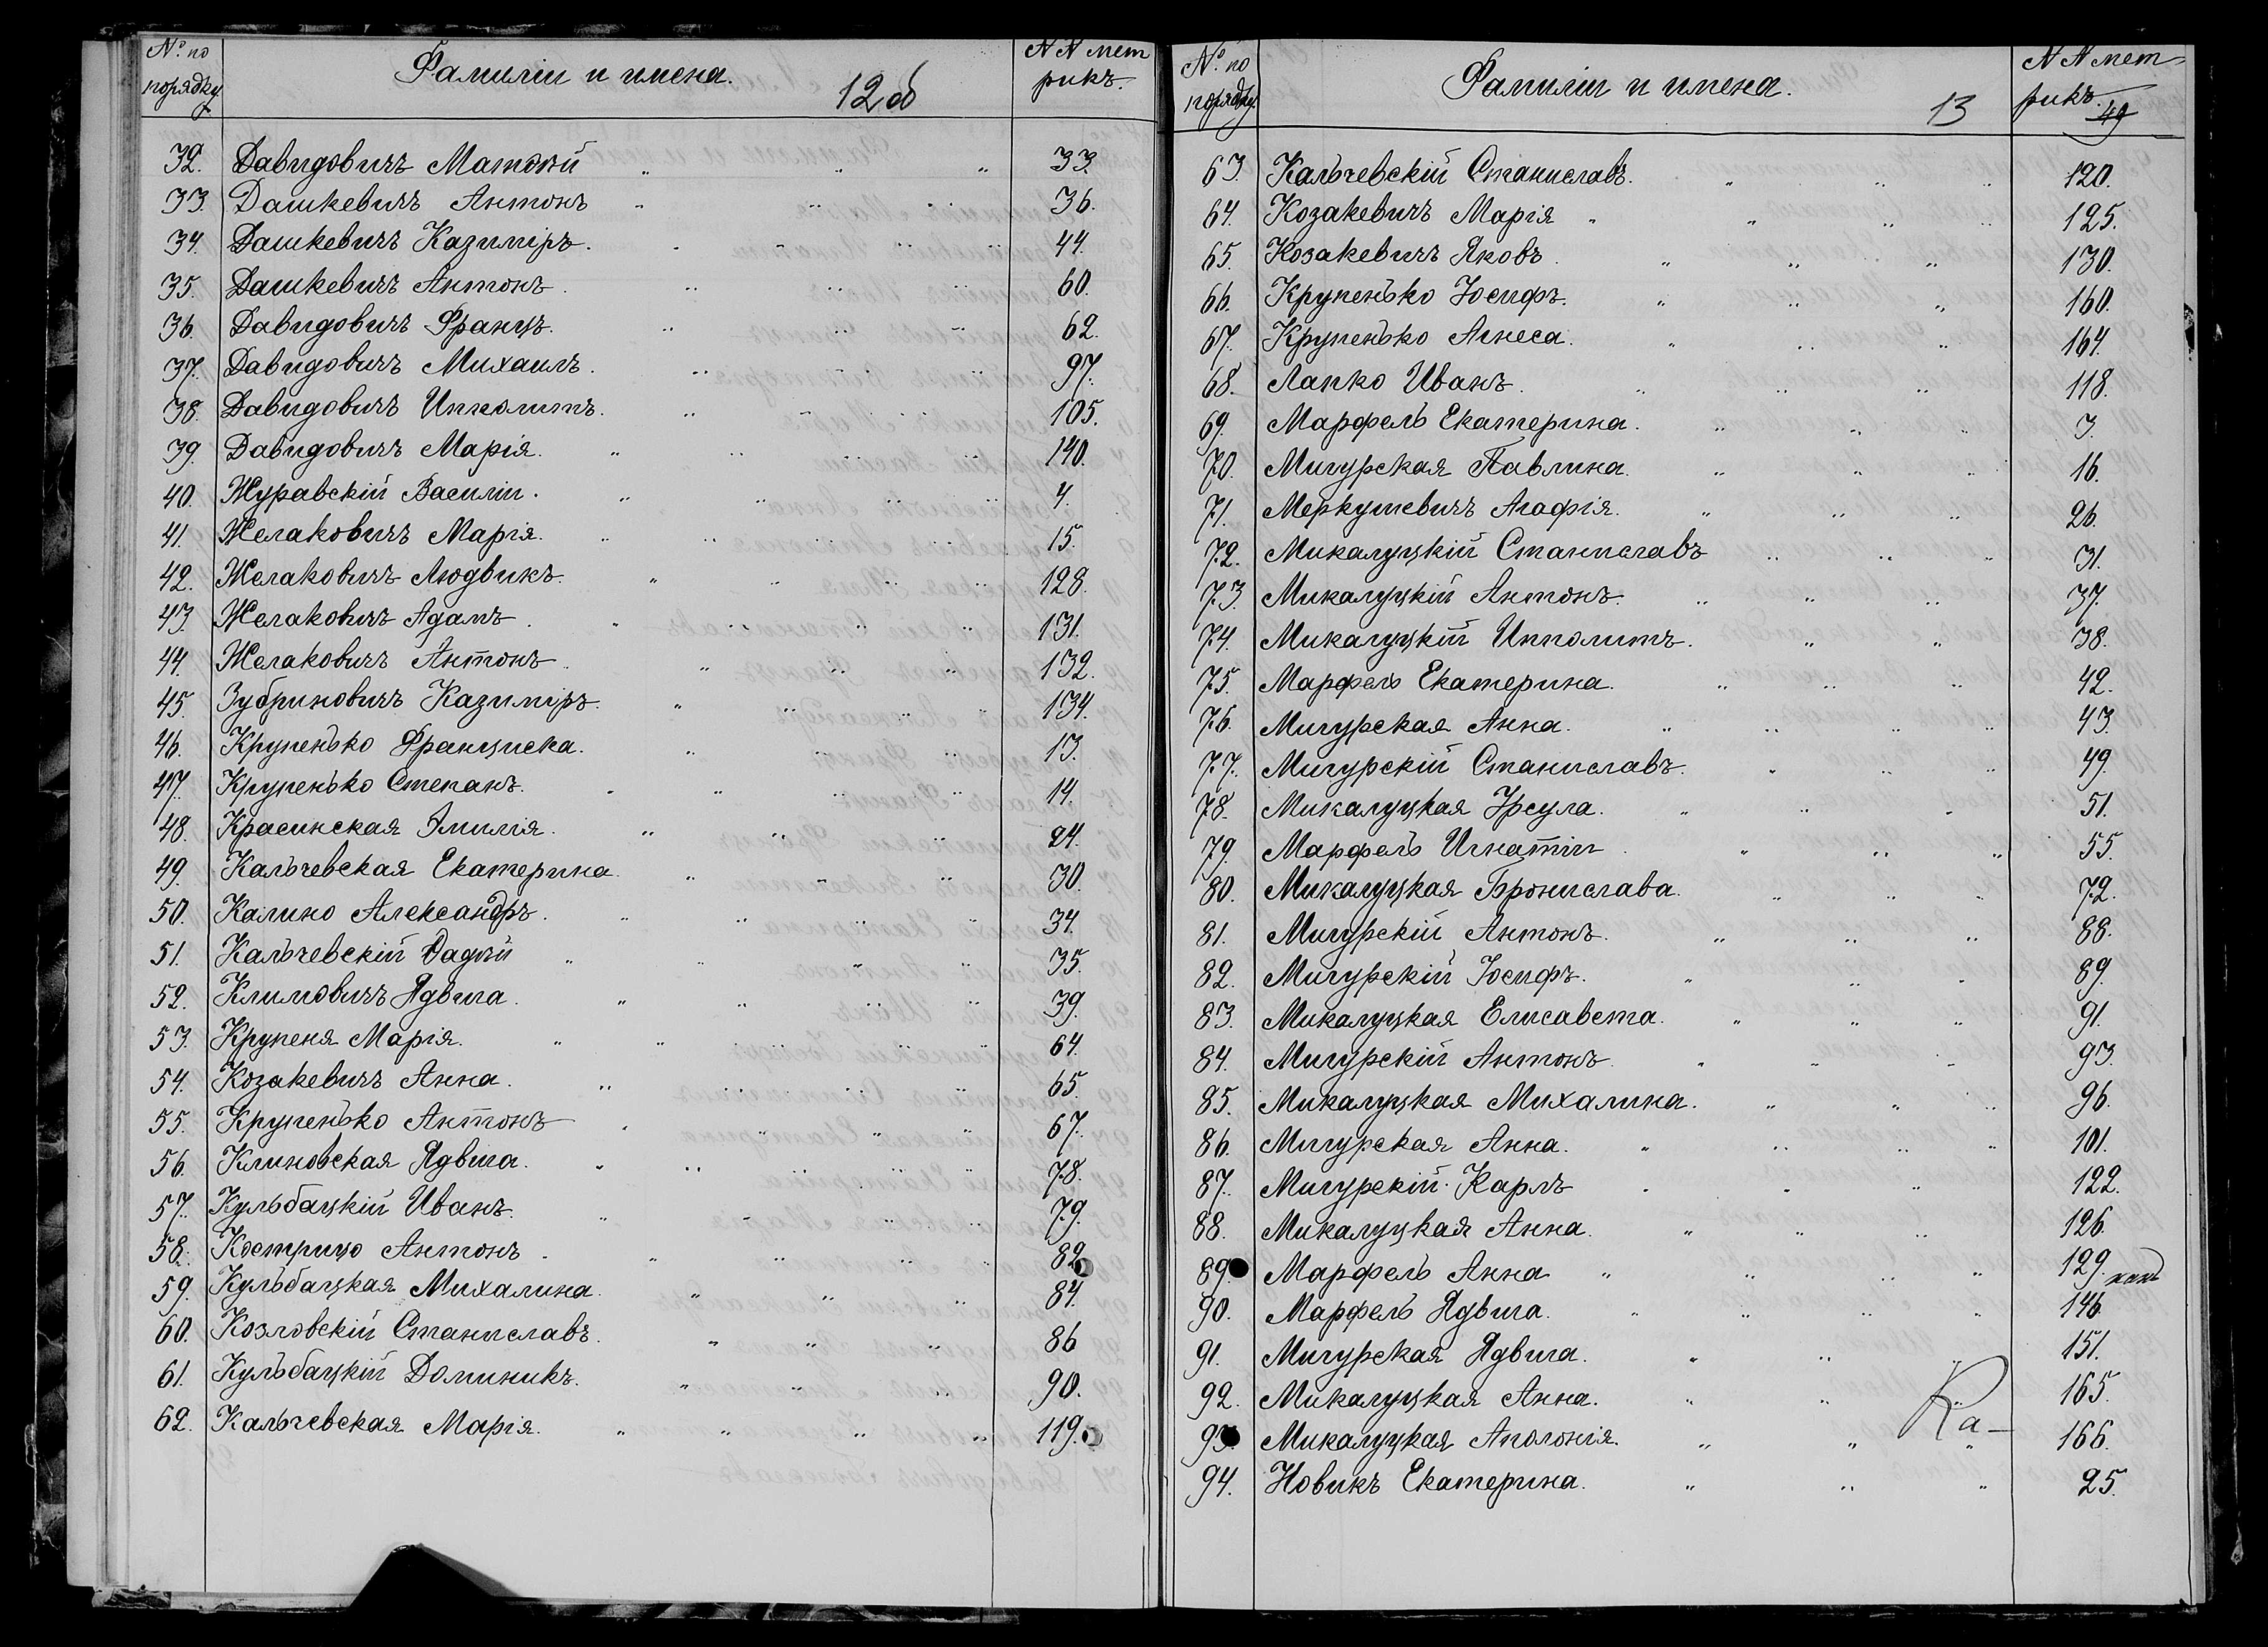 № по порядку
Фамиліи и имена.
12об
N N мет
рикъ.
32. Давидовичъ Матѳѣй 33.
33. Дашкевичъ Антонъ 36.
34. Дашкевичъ Казиміръ. 44.
35. Дашкевичъ Антонъ. 60.
36. Давидовичъ Францъ. 62.
37. Давидовичъ Михаилъ. 97.
38. Давидовичъ Ипполитъ. 105.
39. Давидовичъ Марія. 140.
40. Журавскій Василій. 4.
41. Желаковичъ Марія. 15.
42. Желаковичъ Людвикъ. 128.
43. Желаковичъ Адамъ. 131.
44. Желаковичъ Антонъ. 132.
45. Зубриновичъ Казиміръ. 134.
46. Крупенько Франциска. 13.
47. Крупенько Степанъ. 14.
48. Красинская Эмилія. 24.
49. Кальчевская Екатерина. 30.
50. Калино Александръ. 34.
51. Кальчевскій Фадѣй 35.
52. Климовичъ Ядвига. 39.
53. Крупеня Марія. 64.
54. Козакевичъ Анна. 65.
55. Крупенько Антонъ 67.
56. Клиновская Ядвига. 78.
57. Кульбацкій Иванъ. 79.
58. Кострицо Антонъ. 82
59. Кульбацкая Михалина. 84.
60. Козловскій Станиславъ. 86
61. Кульбацкій Доминикъ. 90.
62. Кальчевская Марія. 119.
№ по порядку
Фамиліи и имена.
13
N N мет
рикъ. 49
63. Кальчевскій Станиславъ. 120.
64. Козакевичъ Марія 125.
65. Козакевичъ Яковъ. 130.
66. Крупенько Іосифъ. 160.
67. Крупенько Агнеса. 164.
68. Лапко Иванъ. 118.
69. Марфель Екатерина. 3.
70. Мигурская Павлина. 16.
71. Меркушевичъ Агафія. 26.
72. Микалуцкій Станиславъ 31.
73. Микалуцкій Антонъ. 37.
74. Микалуцкій Ипполитъ. 38.
75. Марфель Екатерина. 42.
76. Мигурская Анна. 43.
77. Мигурскій Станиславъ. 49.
78. Микалуцкая Урсула. 51.
79. Марфель Игнатій 55.
80. Микалуцкая Бронислава. 72.
81. Мигурскій Антонъ. 88.
82. Мигурскій Іосифъ. 89.
83. Микалуцкая Елисавета. 91.
84. Мигурскій Антонъ. 93.
85. Микалуцкая Михалина. 96.
86. Мигурская Анна. 101.
87. Мигурскій Карлъ 122.
88. Микалуцкая Анна. 126.
89. Марфель Анна 129.
90. Марфель Ядвига. 146
91. Мигурская Ядвига. 151.
92. Микалуцкая Анна. 165.
93. Микалуцкая Аполонія. 166.
94. Новикъ Екатерина. 25.